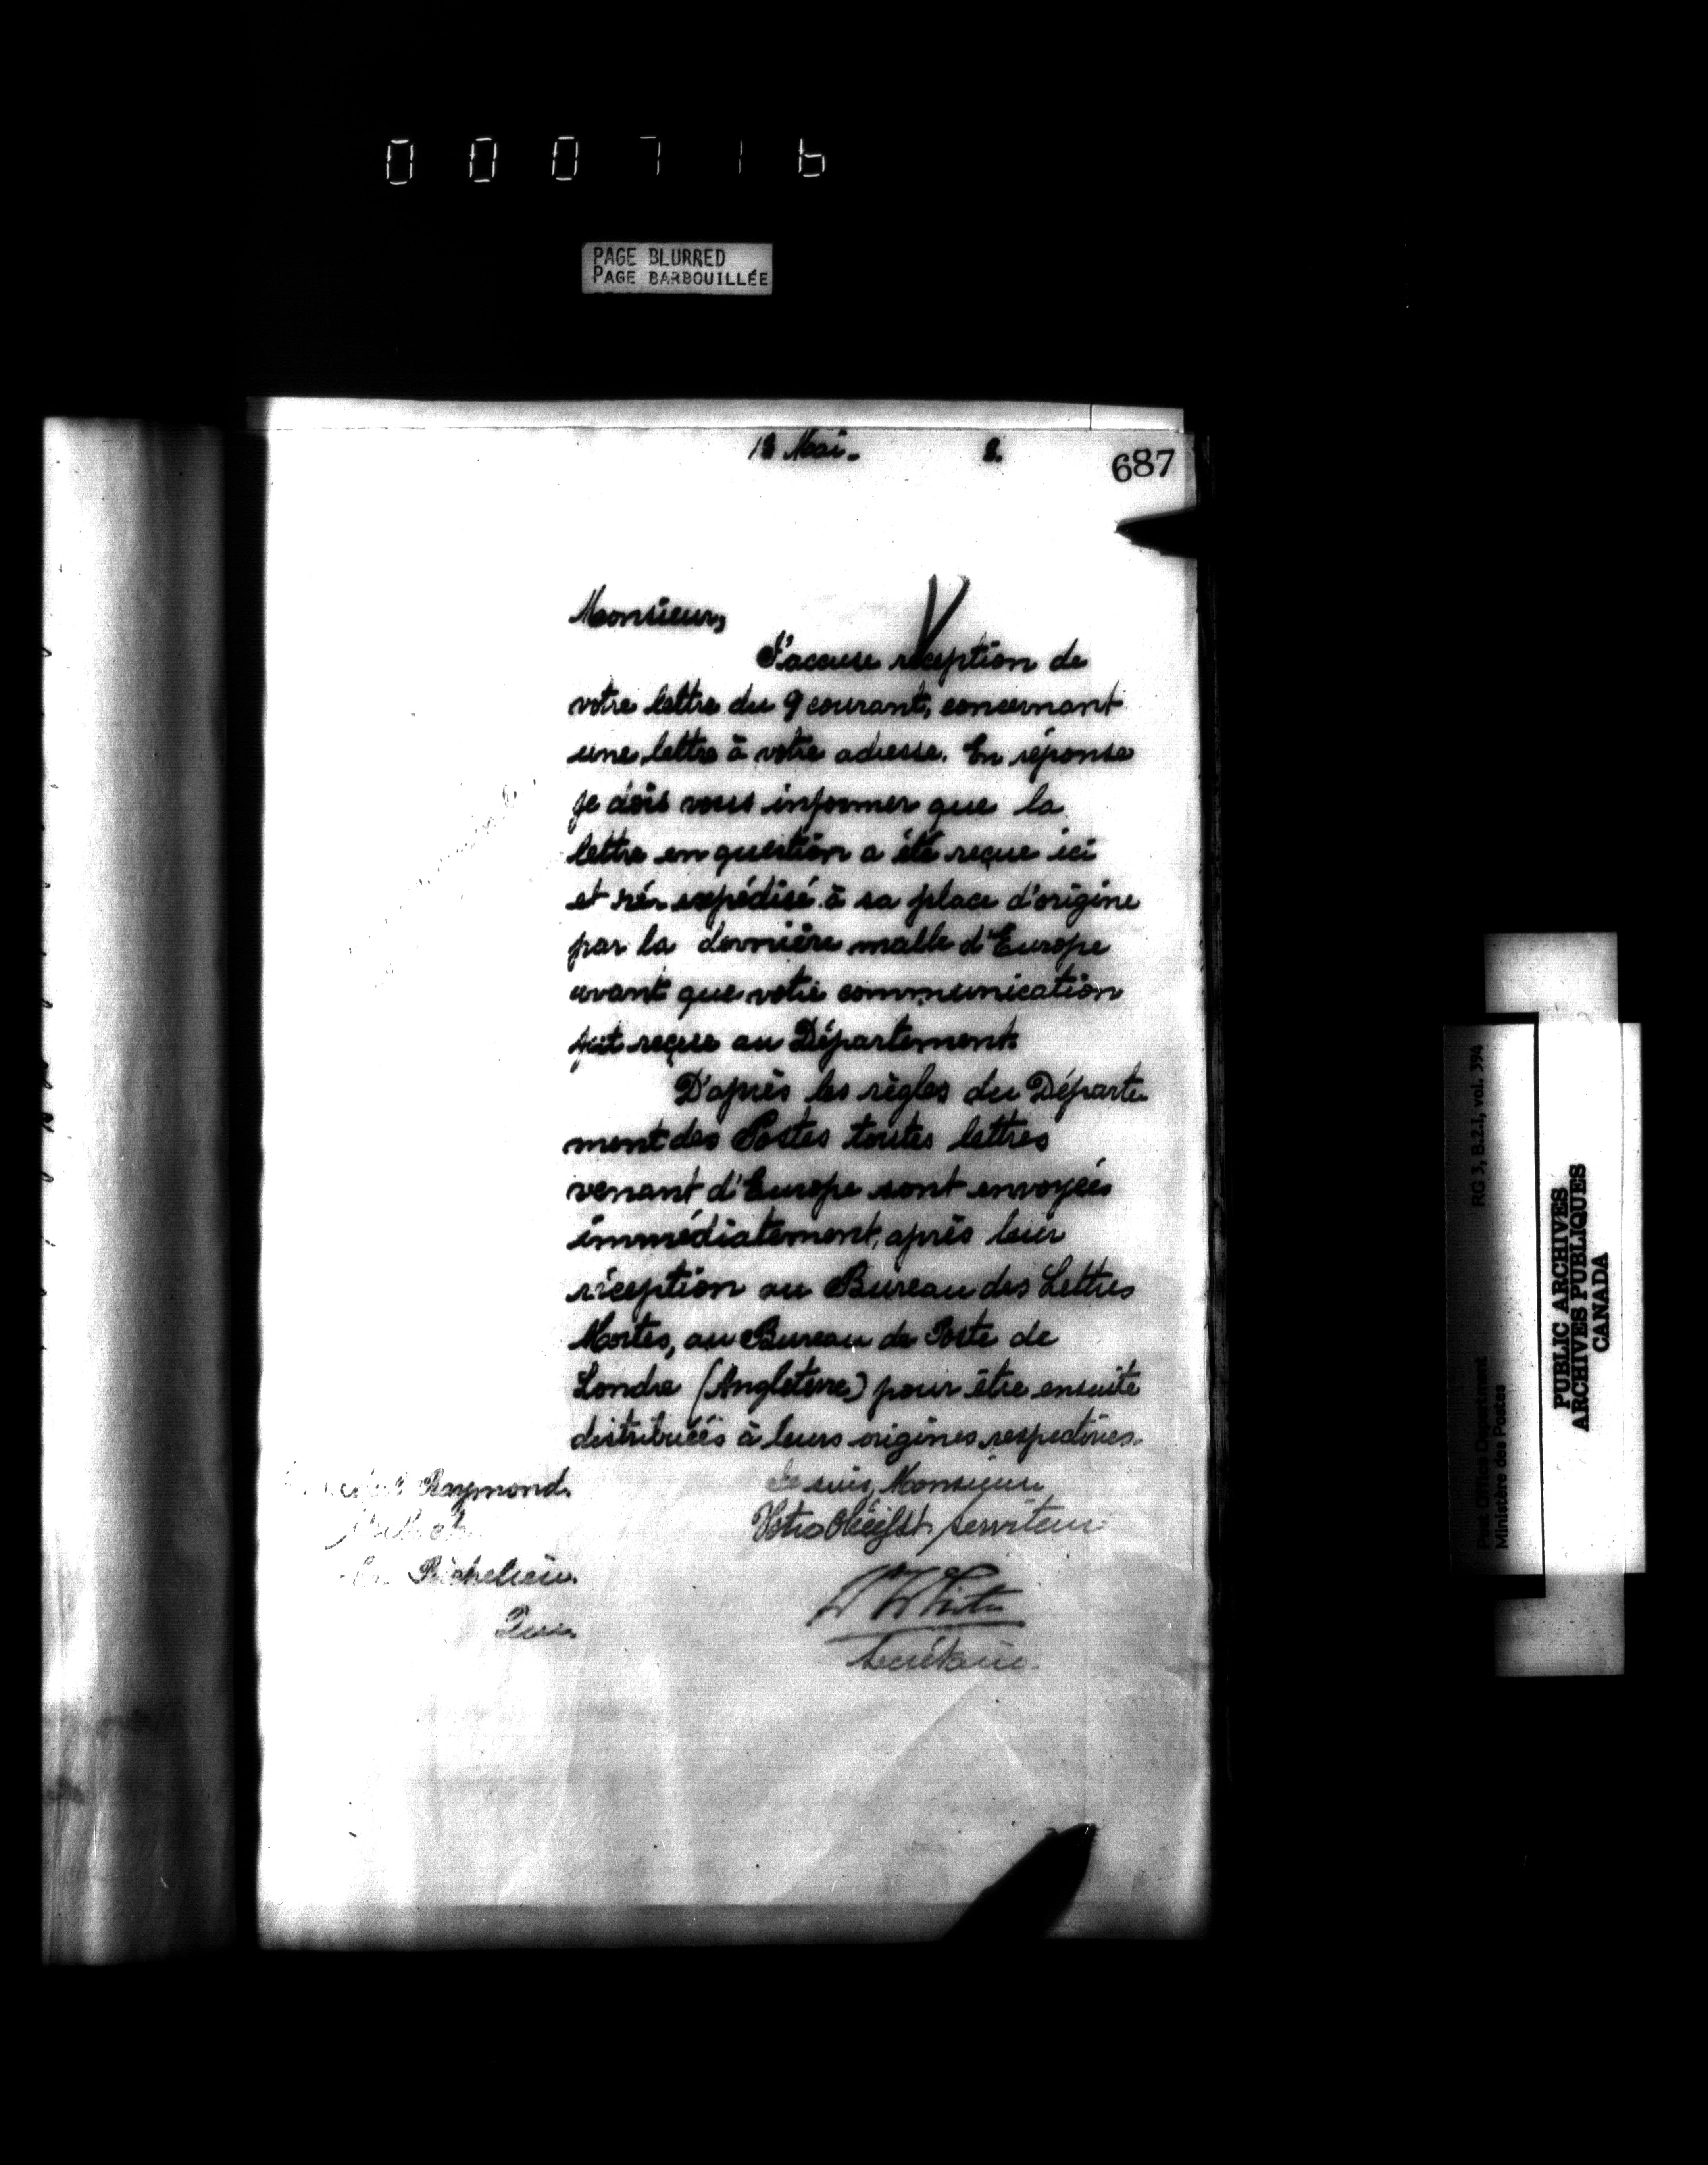 000716
PAGE BLURRED
PAGE BARBOUILLÉE
18 Mai. 8.
687
Monsieur,
J'accuse réception de
votre lettre du 9 courant, concernant
une lettre à votre adresse. En réponse
je dois vous informer que la
lettre en question a été reçue ici
et ré-expédié à sa place d'origine
par la dernière malle d'Europe
avant que votre communication
fut reçue au Département.
D'après les règles du Départe-
ment des Postes toutes lettres
venant d'Europe sont envoyées
immédiatement, après leur
réception au Bureau des Lettres
Mortes, au Bureau de Poste de
Londre (Angleterre) pour être ensuite
distribuées à leurs origines respectives.
Je suis, Monsieur
Votre Obéisst. Serviteur
W White
Secrétaire.
Raymond.
Richelieu.
Que.
RG 3, B.2.1, vol. 394
Post Office Department
Ministère des Postes
PUBLIC ARCHIVES
ARCHIVES PUBLIQUES
CANADA